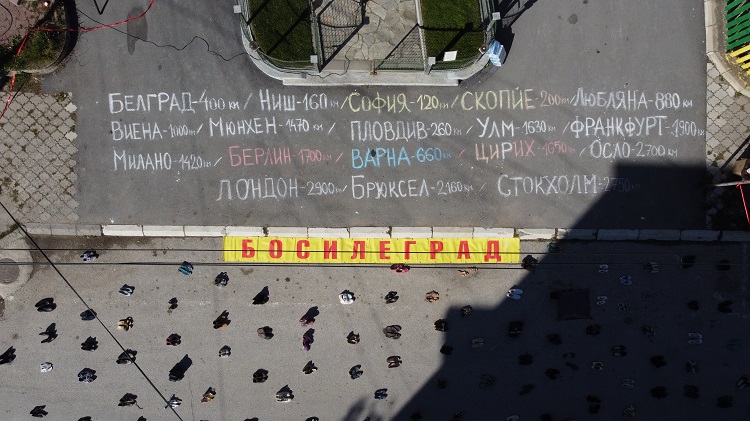 БЕЛГРАД-400 км / НИШ-160 км / СОФИЯ-120 км / СКОПИЕ-200 км / ЛЮБЛЯНА-880 км
ВИЕНА-1000 км / МЮНХЕН-1470 км / ПЛОВДИВ-260 км / УЛМ-1630 км / ФРАНКФУРТ-1900 км
МИЛАНО-1420 км / БЕРЛИН-1700 км / ВАРНА-660 км / ЦИРИХ-1650 км / ОСЛО-2700 км
ЛОНДОН-2900 км / БРЮКСЕЛ-2160 км / СТОКХОЛМ
БОСИЛЕГРАД